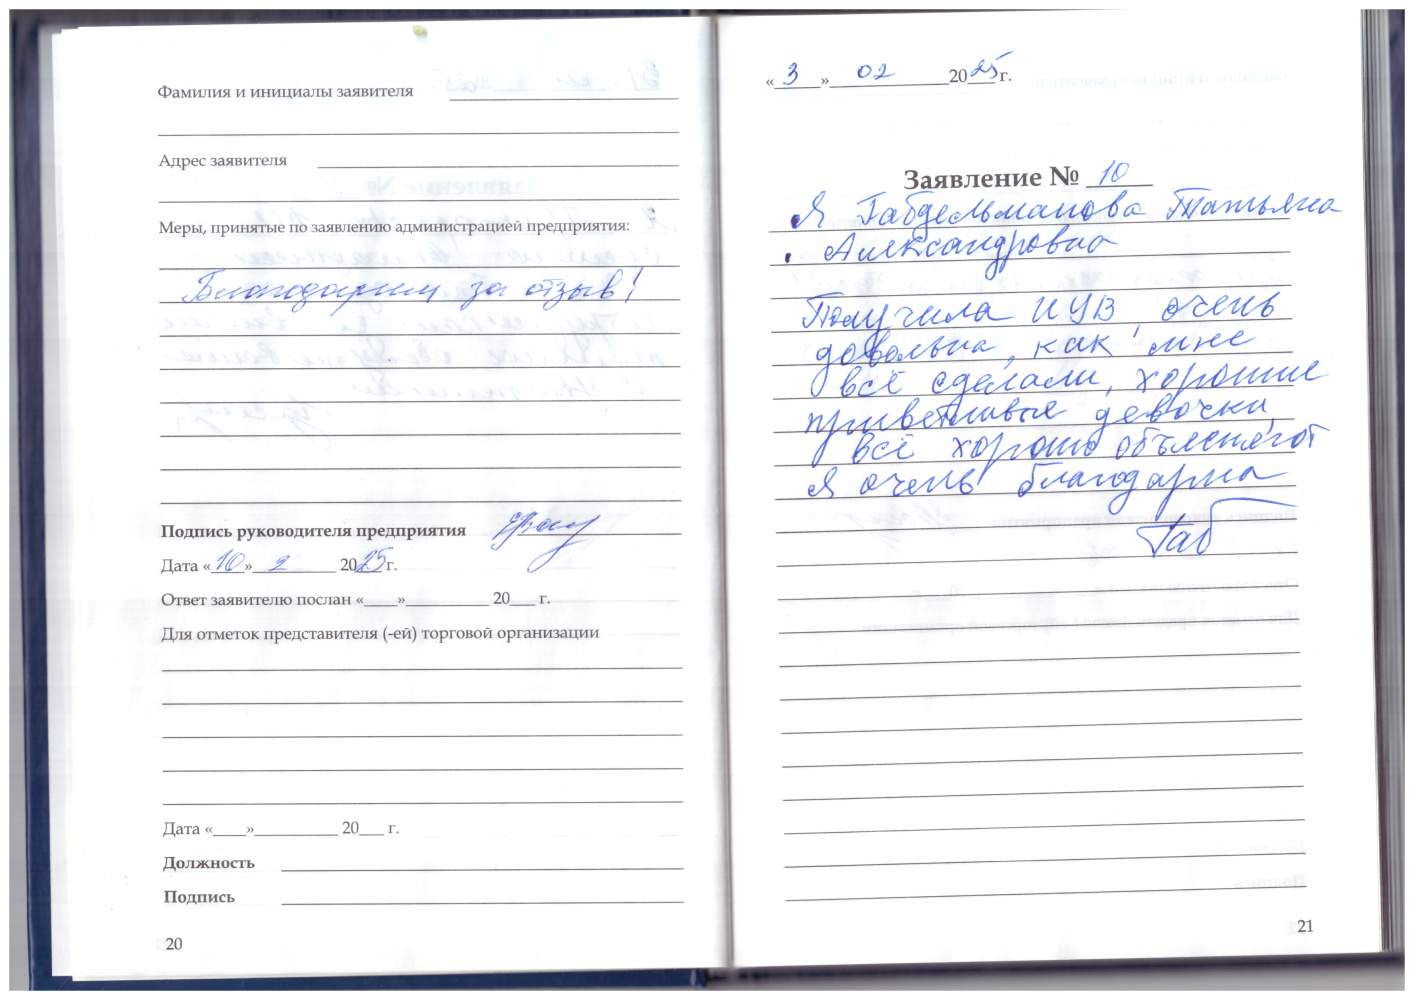 Фамилия и инициалы заявителя
Адрес заявителя
Меры, принятые по заявлению администрацией предприятия:
Благодарим за отзыв!
Подпись руководителя предприятия
Дата «10» 2 2025 г.
Ответ заявителю послан «____»__________ 20___ г.
Для отметок представителя (-ей) торговой организации
Дата «____»__________ 20___ г.
Должность
Подпись
20
«3» 02 2025 г.
Заявление № 10
Я Габдельманова Татьяна
Александровна
Получила ИЦВ очень
довольна, как мне
всё сделали, хорошие
приветливые девочки,
всё хорошо объясняют
Я очень благодарна
Габ
21